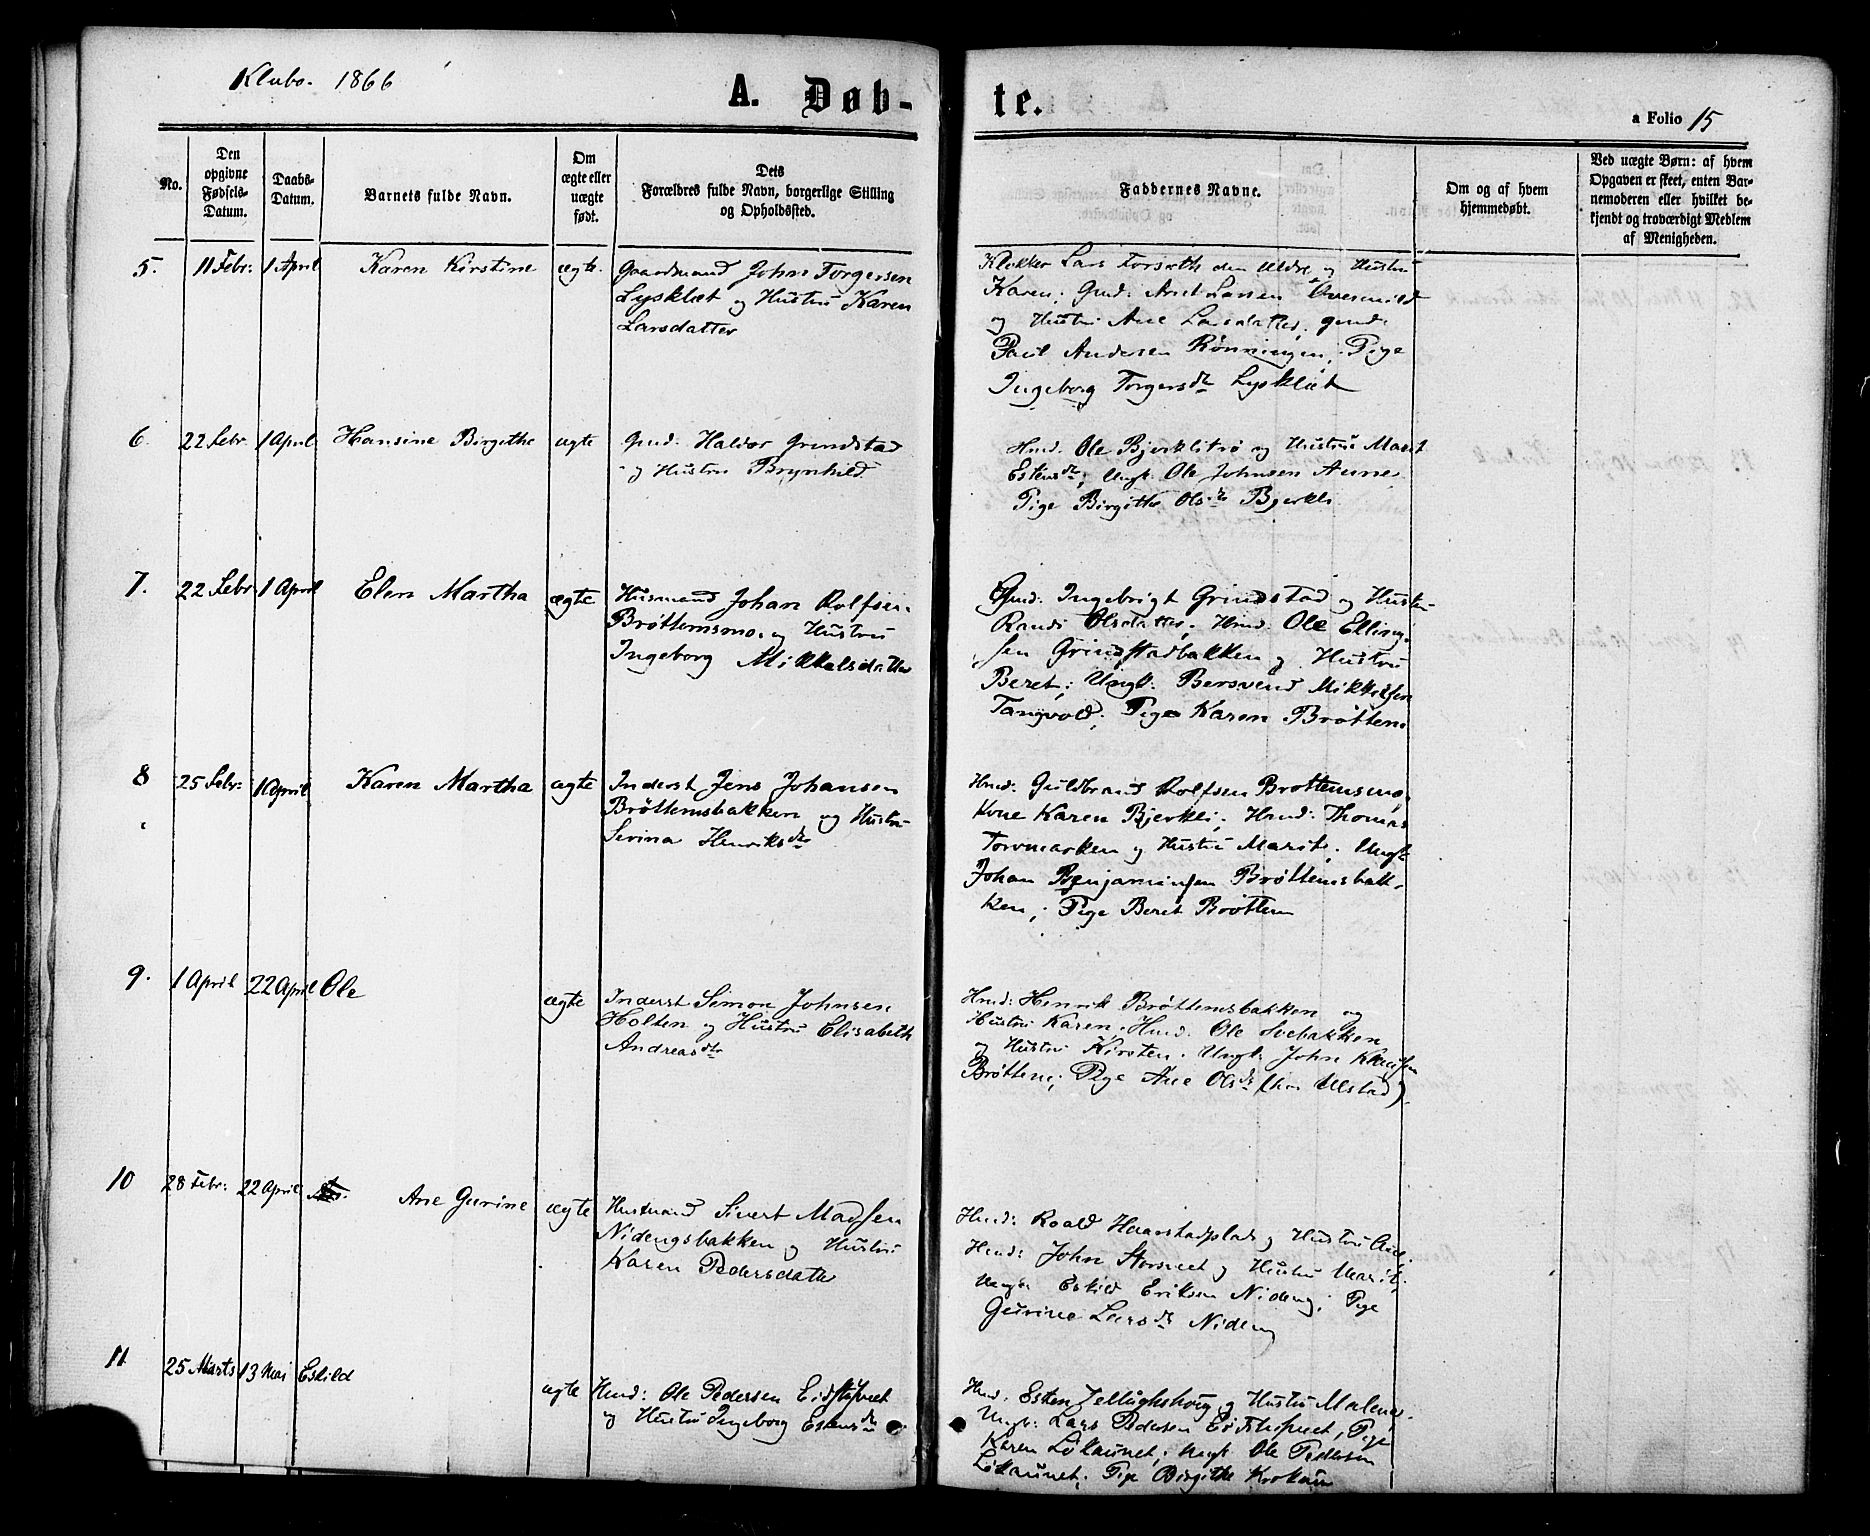 Klæbo. 1866
A. Døb-
te.
a Folio 15
No.
Den opgivne Fødsels-Datum.
Daabs-Datum.
Barnets fulde Navn.
Om ægte eller uægte født.
Dets Forældres fulde Navn, borgerlige Stilling og Opholdssted.
Faddernes Navne.
Om og af hvem hjemmedøbt.
Ved uægte Børn: af hvem Opgaven er skeet, enten Barnemoderen eller hvilket bekjendt og troværdigt Medlem af Menigheden.
5. 11 Febr: 1 April Karen Kirstine ægte.
Gaardmand John Torgersen
Lysklet og Hustru Karen
Larsdatter
Klokker Lars Forseth den Ældre og Hustru
Karen; Gmd: Arnt Larsen Overmild
og Hustru Ane Larsdatter. gmd:
Paul Andersen Rönningen; Pige
Ingeborg Torgersdtr Lysklet
6. 22 Febr. 1 April. Hansine Birgithe ægte
Gmd: Haldor Grendstad
og Hustru Brynhild
Hmd: Ole Bjerklitrø og Hustru Marit
Estensdtr; Ungk. Ole Johnsen Aune
Pige Birgitte Olsdtr Bjerkli
7. 22 Febr. 1 April Elen Martha ægte
Husmand Johan Rolfsen
Brøttemsmo. og Hustru
Ingeborg Mikkelsdatter
Gmd: Ingebrigt Grindstad og Hustru
Randi Olsdatter; Hmd: Ole Elling-
sen Grindstadbakken og Hustru
Beret; Ungk: Bersvend Mikkelsen
Tangvold; Pige Karen Brøttem
8 25 Febr: 1 April Karen Martha ægte
Inderst Jens Johansen
Brøttemsbakken og Hustru
Serina Henriksdtr
Hmd: Guldbrand Rolfsen Brottemsmo,
Kone Karen Bjerkli; Hmd: Thomas
Torvmarken og Hustru Marit; Ungk:
Johan Benjaminsen Brøttemsbak-
ken; Pige Beret Brøttem
9. 1 April 22 April Ole ægte
Inderst Simon Johnsen
Holten og Hustru Elisabeth
Andreasdtr
Hmd: Henrik Brøttemsbakken og
Hustru Karen, Hmd: Ole Svebakken
og Hustru Kirsten. Ungk: John Knutsen
Brøttem; Pige Ane Olsdtr (hos Ulstad).
10 28 Febr: 22 April Ane Gurine ægte
Husmand Sivert Madsen
Nidengsbakken og Hustru
Karen Pedersdatter
Hmd: Roald Haarstadplads og Hustru
Hmd: John Storsveet og Hustru Marit;
Ungk: Eskild Eriksen Nideng; Pige
Gurine Larsdtr Nideng
11 25 Marts 13 Mai Eskild ægte
Hmd: Ole Pedersen Eidstuveet
og Hustru Ingeborg Estensdtr
Hmd: Esten og Hustru Malena.
Ungk: Lars Pedersen Eidstuveet, Pige
Karen Løkaunet; Ungk. Ole Pedersen
Løkaunet; Pige Birgithe Krokum